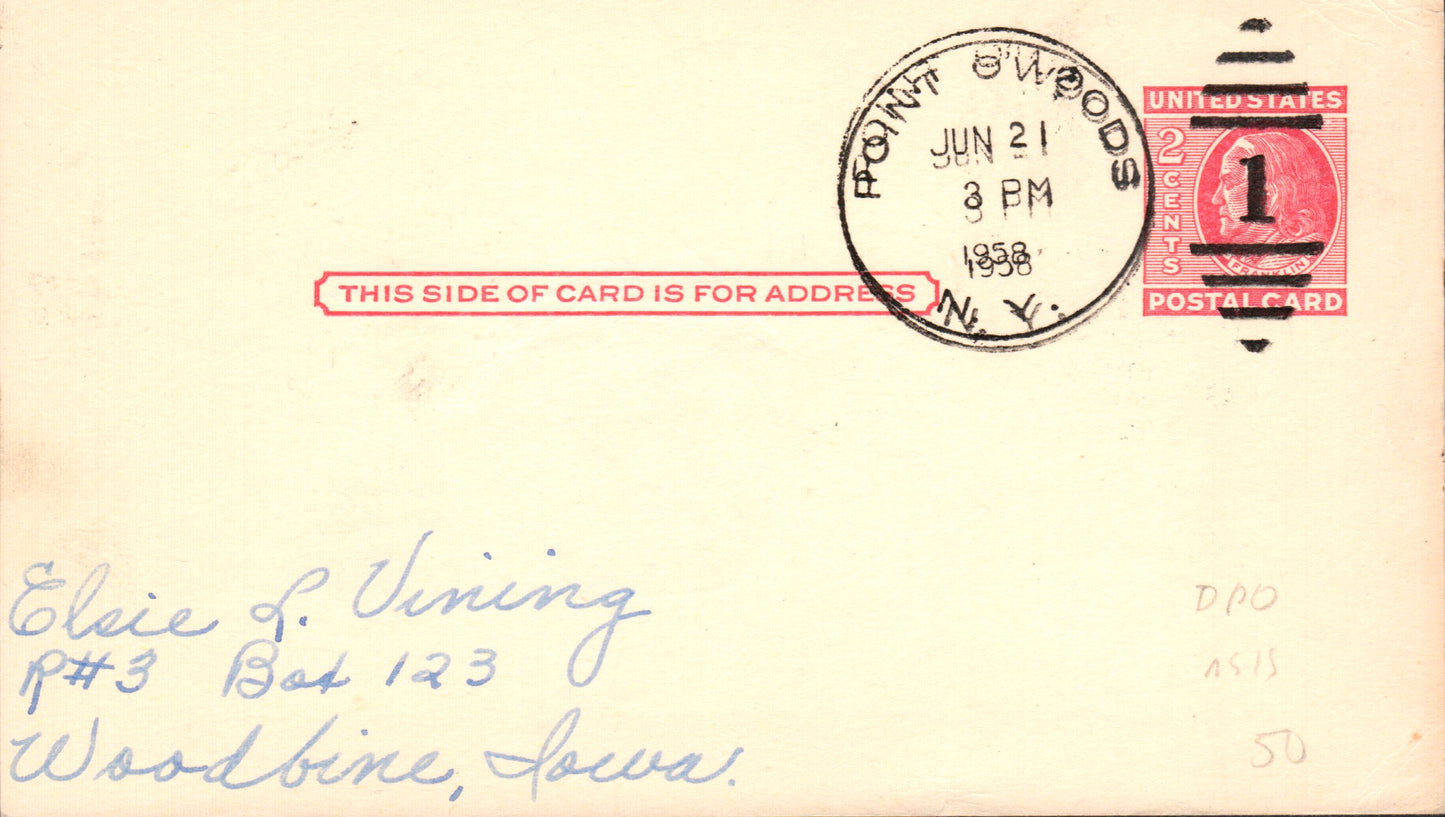 POINT O'WOODS
JUN 21
3 PM
1958
N. Y.
UNITED STATES
2 CENTS
1
FRANKLIN
POSTAL CARD
THIS SIDE OF CARD IS FOR ADDRESS
Elsie L. Vining
R#3 Box 123
Woodbine, Iowa.
DPO
ASIS
50